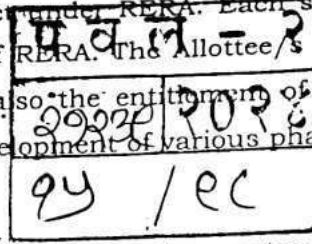 under RERA. Each s
प व ल - २
RERA. The Allottee/s
also the entitlement of
elopment of various pha
१५ / ९८